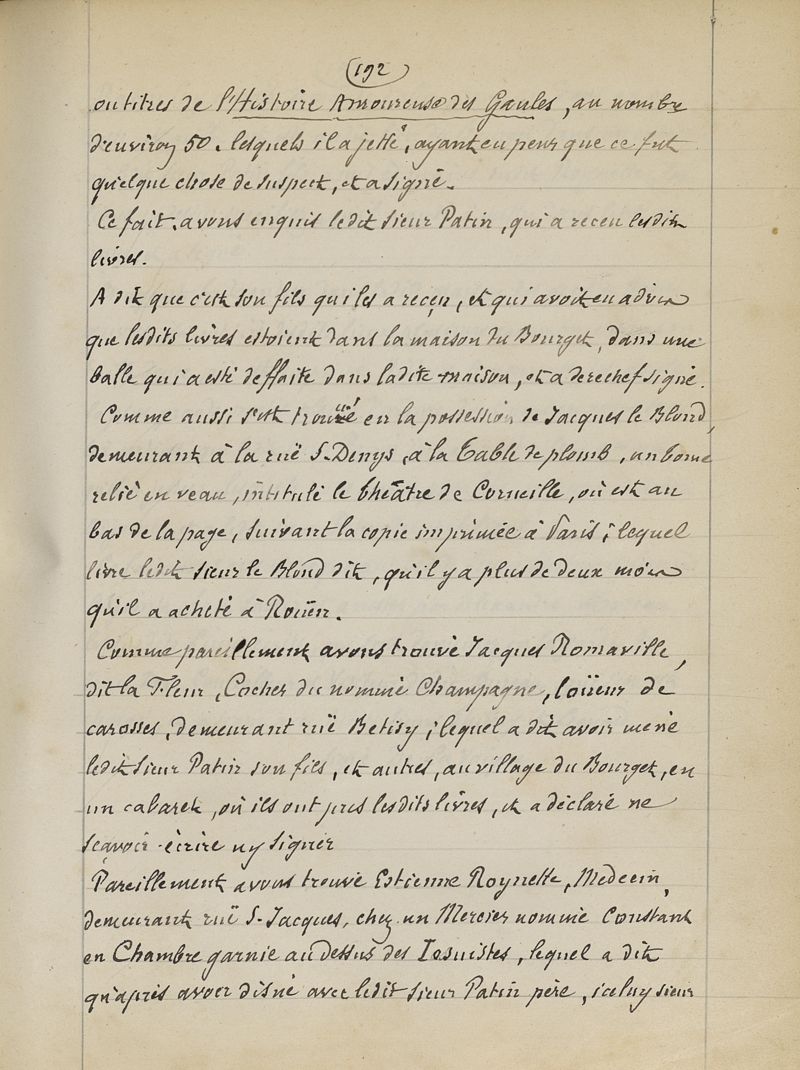 (192)
ou titres de l'Histoire Amoureuse des Gaules, au nombre
d'environ 50. lesquels il a jetté, ayant eu peur que ce fut
quelque chose de suspect, et a signé.
Ce fait, avons enquis ledit sieur Patin, qui a receu lesdits
livres.
A dit que c'est son fils qui les a receu, et qui avoit eu advis
que lesdits livres estoient dans la maison du Bourget, dans une
balle qui a esté deffaite dans ladite maison, et a derechef signé.
Comme aussi s'est trouvé en la possession de Jacques le Blond,
demeurant à la ruë S. Denys, à la Table de plomb, un tome
relié en veau, intitulé le théâtre de Corneille, où est au
bas de la page, suivant la copie imprimée à Paris ; lequel
livre ledit sieur le Blond dit, qu'il y a plus de deux mois
qu'il a acheté à Roüen.
Comme pareillement avons trouvé Jacques Romaville,
dit la Fleur, Cocher du nommé Champagne, loüeur de
carosses, demeurant ruë Betisy ; lequel a dit avoir mené
ledit sieur Patin son fils, et autres, au village du Bourget, en
un cabaret, où ils ont pris lesdits livres, et a déclaré ne
sçavoir écrire ny signer
Pareillement avons trouvé Estienne Roynette, Medecin,
demeurant ruë S. Jacques, chez un Mercier nommé Constant
en Chambre garnie au dessus des Iesuistes, lequel a dit
qu'après avoir disné avec ledit sieur Patin père, iceluy sieur